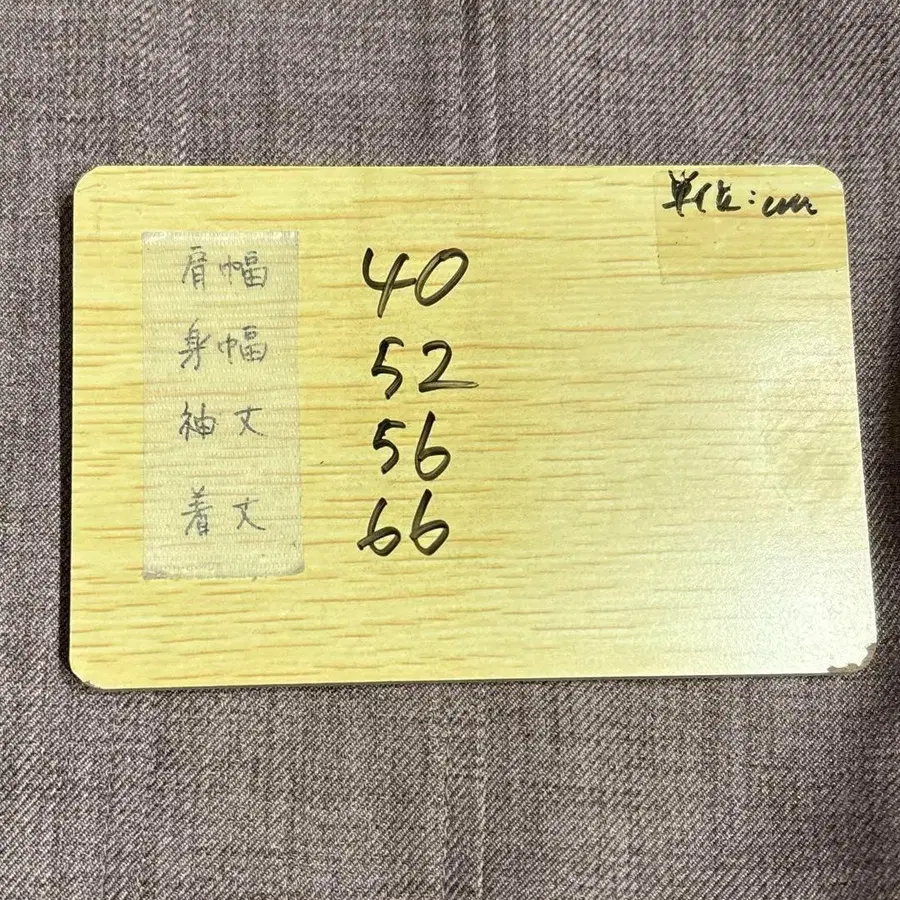 単位:cm
肩幅 40
身幅 52
袖丈 56
着丈 66